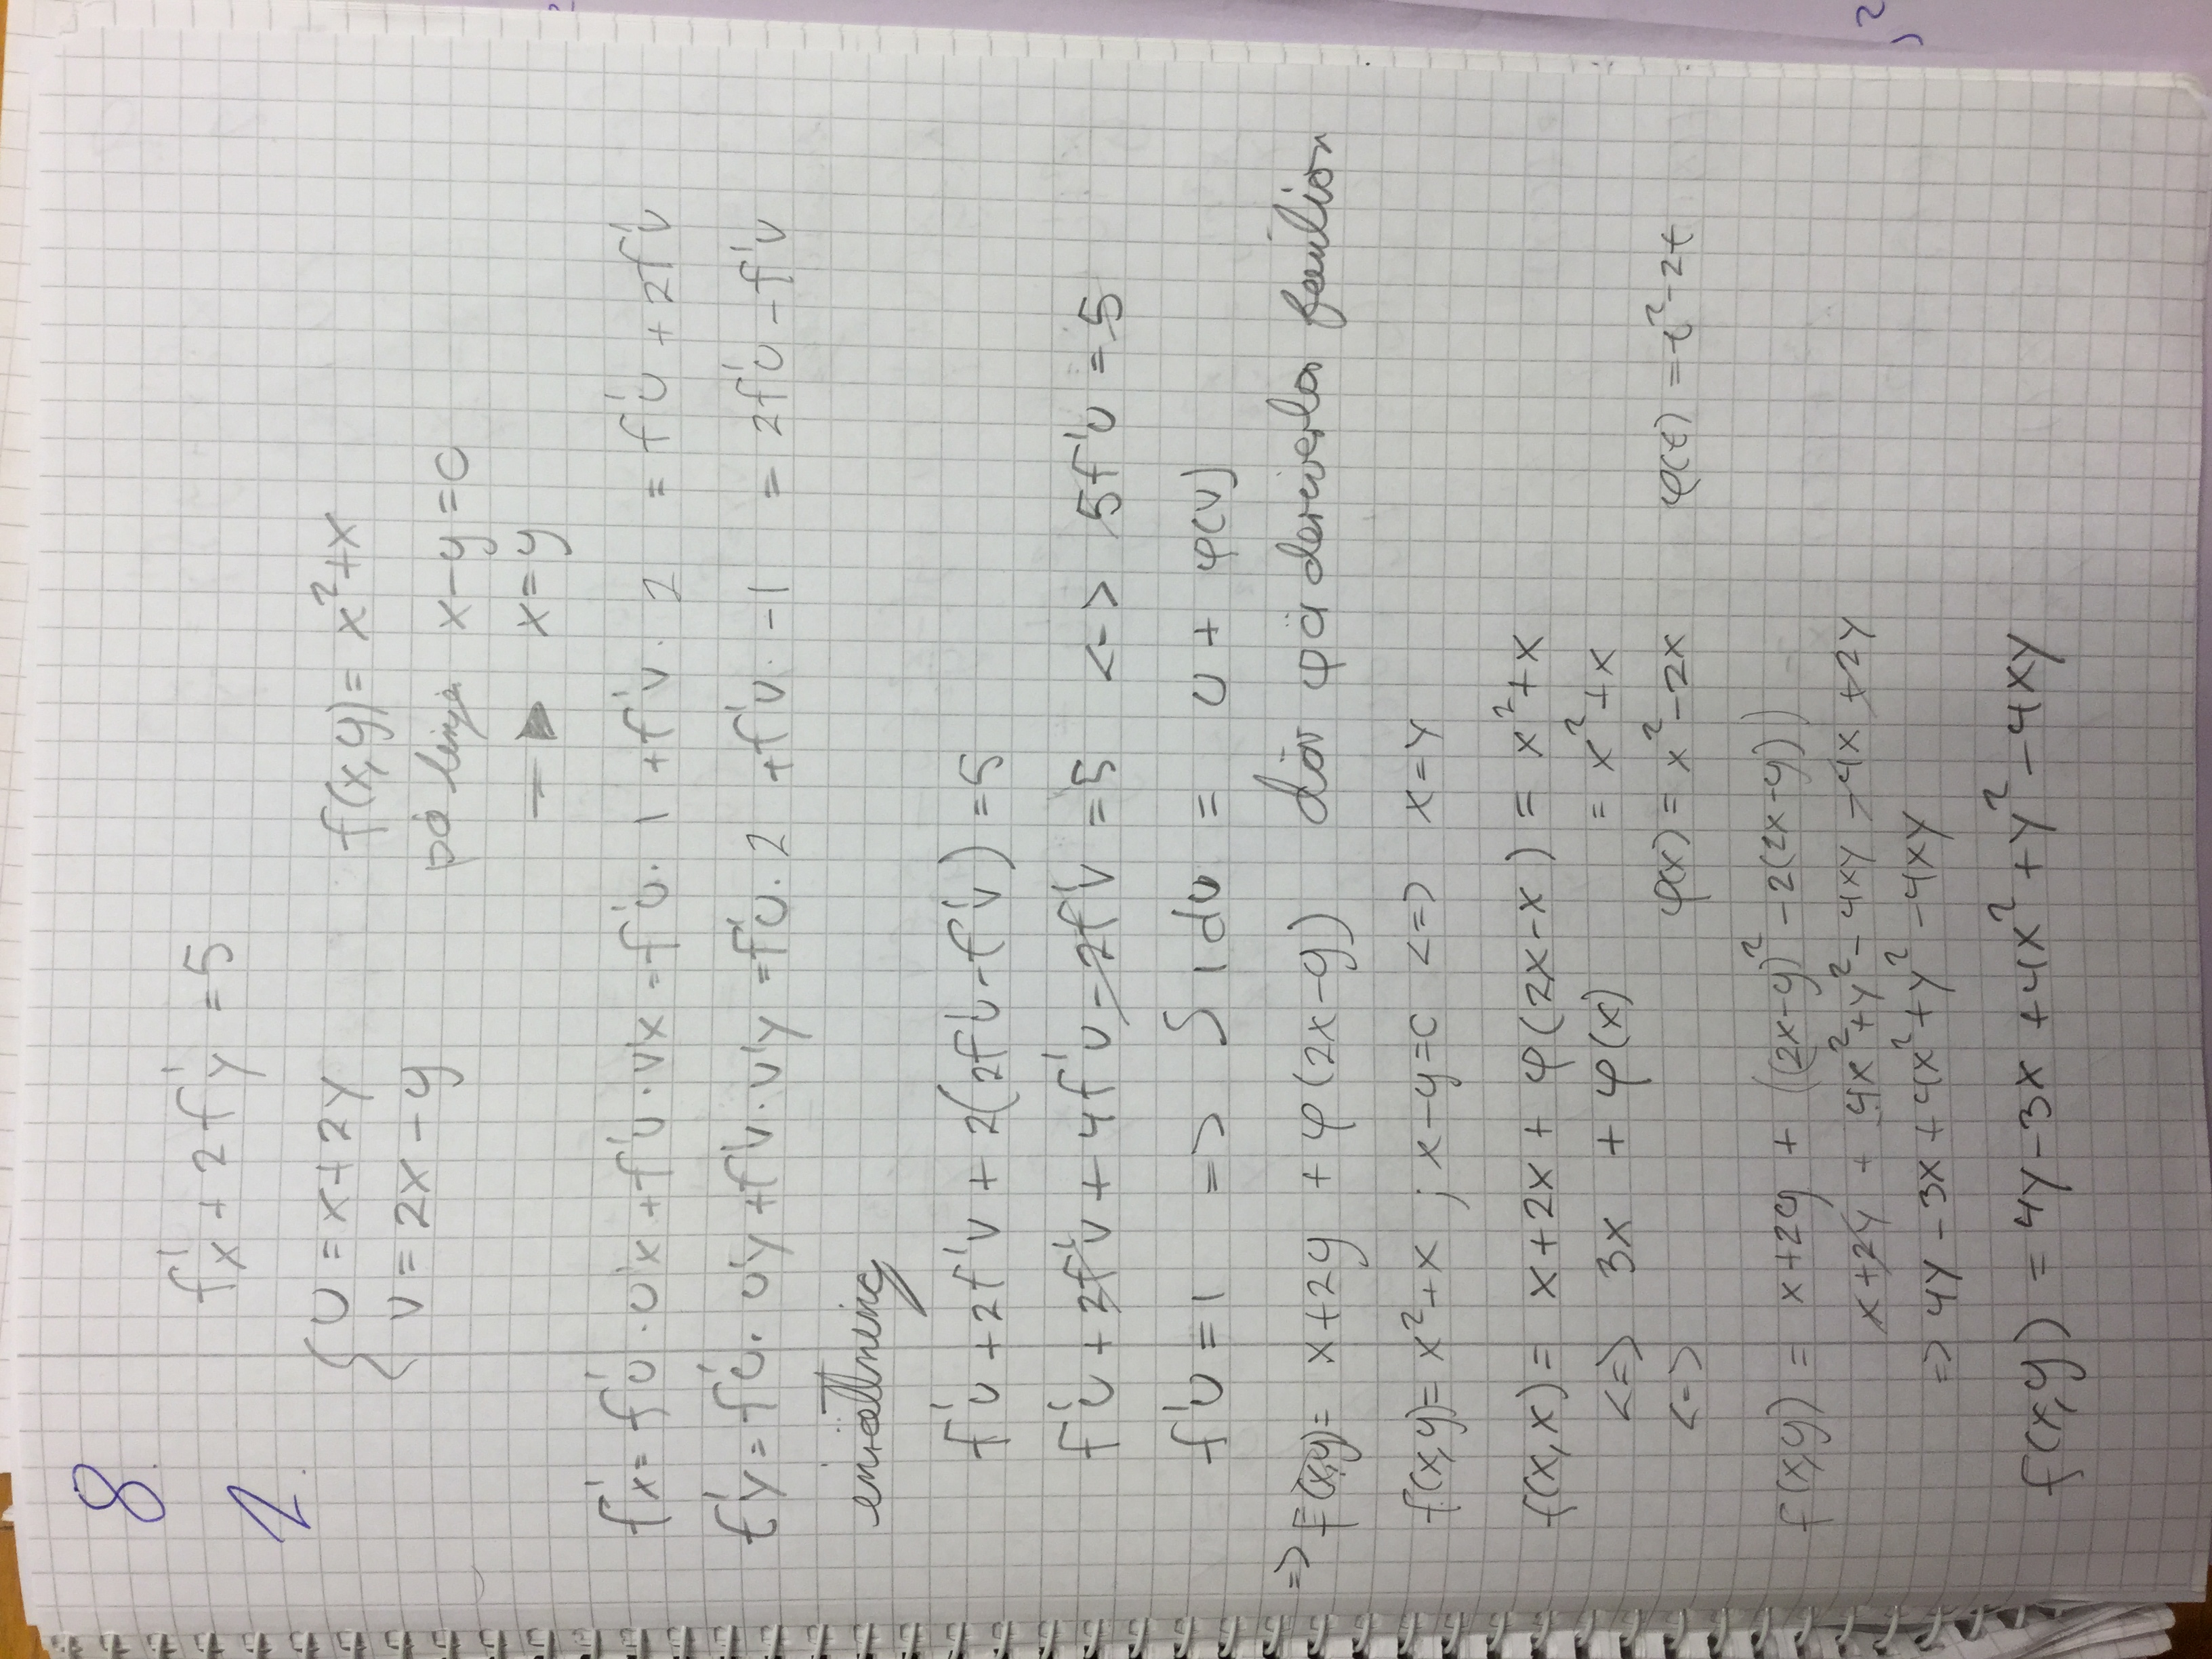 8.
f'x + 2f'y = 5
1.
{ u = x+2y
v = 2x-y
f(x,y) = x²+x
på linje x-y=0
→ x=y
f'x = f'u · u'x + f'v · v'x = f'u · 1 + f'v · 2 = f'u + 2f'v
f'y = f'u · u'y + f'v · v'y = f'u · 2 + f'v · -1 = 2f'u - f'v
insättning
f'u + 2f'v + 2(2f'u - f'v) = 5
f'u + 2f'v + 4f'u - 2f'v = 5 <-> 5f'u = 5
f'u = 1 => ∫ 1 du = u + φ(v)
=> F(x,y) = x+2y + φ(2x-y) där φ deriverbar
f(x,y) = x²+x ; x-y=0 <=> x=y
f(x,x) = x+2x + φ(2x-x) = x²+x
<=> 3x + φ(x) = x²+x
<-> φ(x) = x²-2x φ(t) = t²-2t
f(x,y) = x+2y + ((2x-y)² - 2(2x-y))
x+2y + 4x²+y²-4xy -4x +2y
=> 4y - 3x + 4x² + y² - 4xy
f(x,y) = 4y-3x+4x²+y²-4xy